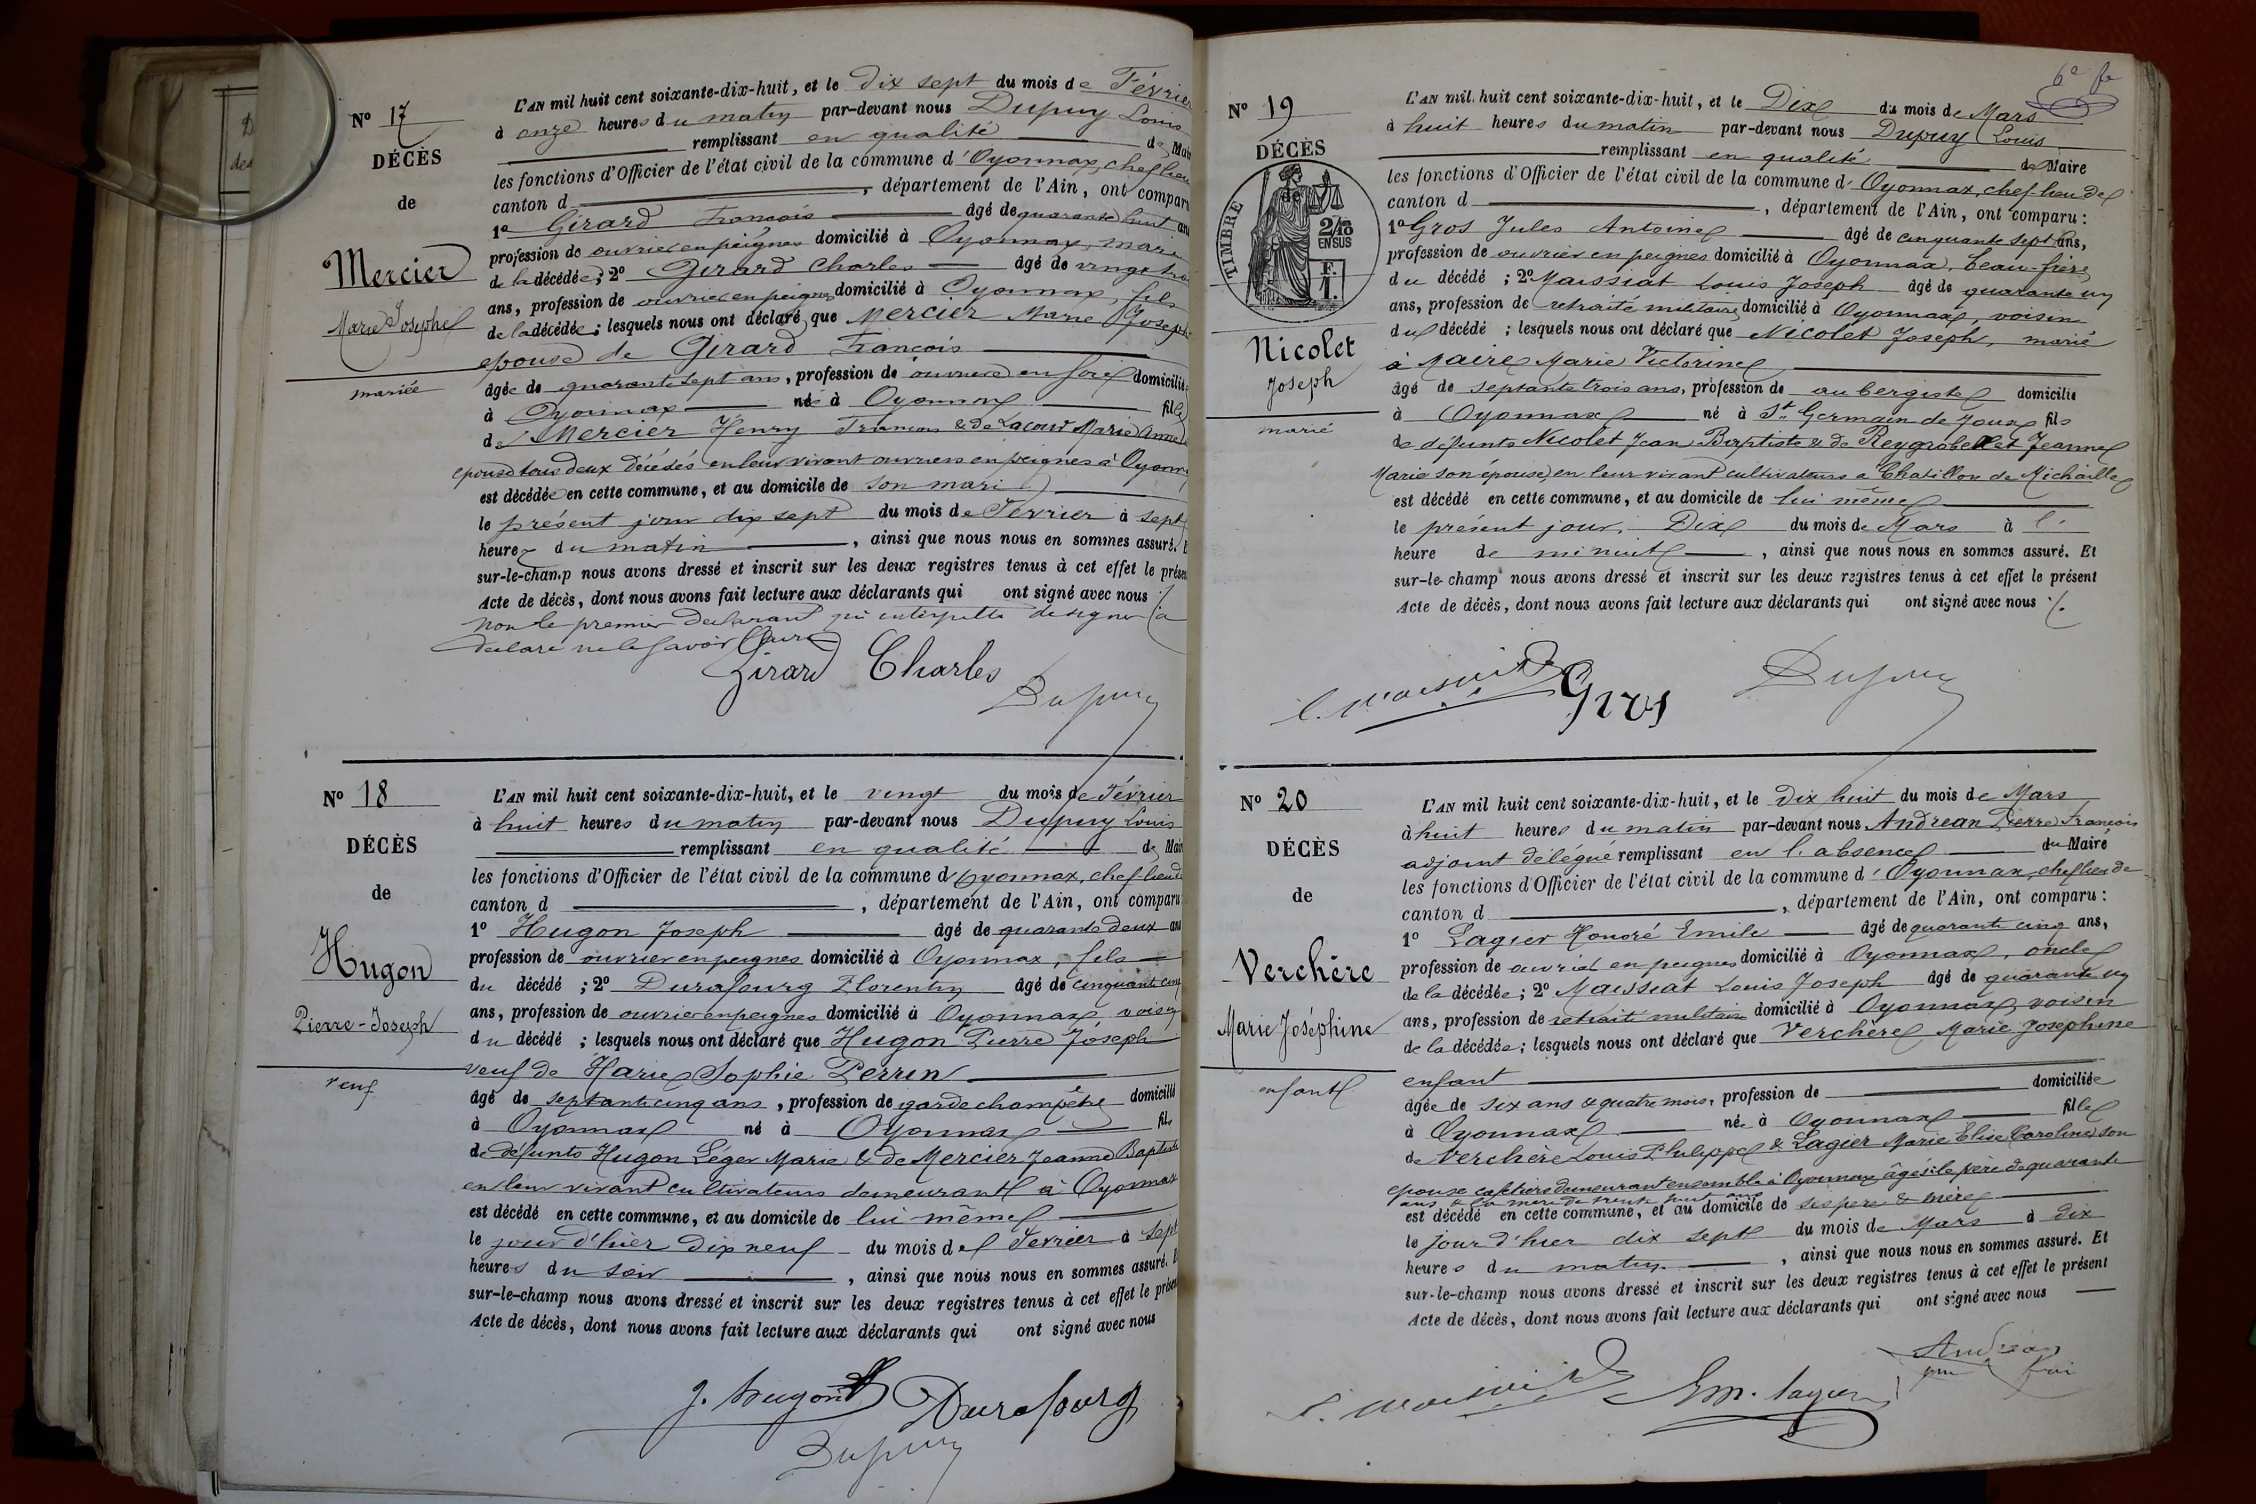 D
de
Nº 17
DÉCÈS
de
Mercier
Marie Josephe
mariée
L'AN mil huit cent soixante-dix-huit, et le dix sept du mois de Février
à onze heures du matin par-devant nous Dupuy Louis
remplissant en qualité de Mair
les fonctions d'Officier de l'état civil de la commune d'Oyonnax, chef lieu
canton d , département de l'Ain, ont comparu
1º Girard François âgé de quarante huit ans
profession de ouvrier en peignes domicilié à Oyonnax, mari
de la décédée; 2º Girard Charles âgé de vingt trois
ans, profession de ouvrier en peignes domicilié à Oyonnax, fils
de la décédée; lesquels nous ont déclaré que Mercier Marie Josephe
épouse de Girard François
âgée de quarante sept ans, profession de ouvrière en soie domiciliée
à Oyonnax née à Oyonnax fille
de Mercier Henry François & de Lacour Marie Anne
épouse tous deux décédés en leur vivant ouvriers en peignes à Oyonnax
est décédée en cette commune, et au domicile de son mari
le présent jour dix sept du mois de Février à sept
heures du matin , ainsi que nous nous en sommes assuré. E
sur-le-champ nous avons dressé et inscrit sur les deux registres tenus à cet effet le présen
Acte de décès, dont nous avons fait lecture aux déclarants qui ont signé avec nous
non le premier déclarant qui interpellé de signer a
déclaré ne le savoir faire
Girard Charles
Dupuy
Nº 18
DÉCÈS
de
Hugon
Pierre-Joseph
veuf
L'AN mil huit cent soixante-dix-huit, et le vingt du mois de Février
à huit heures du matin par-devant nous Dupuy Louis
remplissant en qualité de Mair
les fonctions d'Officier de l'état civil de la commune d'Oyonnax, chef lieu de
canton d , département de l'Ain, ont comparu
1º Hugon Joseph âgé de quarante deux ans
profession de ouvrier en peignes domicilié à Oyonnax, fils
du décédé; 2º Durafourg Florentin âgé de cinquante cinq
ans, profession de ouvrier en peignes domicilié à Oyonnax voisin
du décédé; lesquels nous ont déclaré que Hugon Pierre Joseph
veuf de Marie Sophie Perrin
âgé de septante cinq ans, profession de garde champêtre domicilié
à Oyonnax né à Oyonnax fils
de défunts Hugon Léger Marie & de Mercier Jeanne Baptiste
en leur vivant cultivateurs demeurant à Oyonnax
est décédé en cette commune, et au domicile de lui même
le jour d'hier dix neuf du mois de Fevrier à sept
heures du soir , ainsi que nous nous en sommes assuré. E
sur-le-champ nous avons dressé et inscrit sur les deux registres tenus à cet effet le présen
Acte de décès, dont nous avons fait lecture aux déclarants qui ont signé avec nous
J. hugon Durafourg
Dupuy
6e
Nº 19
DÉCÈS
de
TIMBRE
2/10
EN SUS
F.
1.
Nicolet
Joseph
marié
L'AN mil huit cent soixante-dix-huit, et le Dix du mois de Mars
à huit heures du matin par-devant nous Dupuy Louis
remplissant en qualité de Maire
les fonctions d'Officier de l'état civil de la commune d'Oyonnax, chef-lieu de
canton d , département de l'Ain, ont comparu:
1º Gros Jules Antoine âgé de cinquante sept ans,
profession de ouvrier en peignes domicilié à Oyonnax, beau-frère
du décédé; 2º Maissiat Louis Joseph âgé de quarante un
ans, profession de retraité militaire domicilié à Oyonnax, voisin
du décédé; lesquels nous ont déclaré que Nicolet Joseph, marié
à Maire Marie Victorine
âgé de septante trois ans, profession de aubergiste domicilié
à Oyonnax né à St Germain de Joux fils
de défunts Nicolet Jean Baptiste & de Reygrobellet Jeanne
Marie son épouse, en leur vivant cultivateurs à Chatillon de Michaille
est décédé en cette commune, et au domicile de lui même
le présent jour, Dix du mois de Mars à l'
heure de minuit , ainsi que nous nous en sommes assuré. Et
sur-le-champ nous avons dressé et inscrit sur les deux registres tenus à cet effet le présent
Acte de décès, dont nous avons fait lecture aux déclarants qui ont signé avec nous
Gros Dupuy
Nº 20
DÉCÈS
de
Verchère
Marie Joséphine
enfant
L'AN mil huit cent soixante-dix-huit, et le dix huit du mois de Mars
à huit heures du matin par-devant nous Andrean Pierre François
adjoint délégué remplissant en l'absence du Maire
les fonctions d'Officier de l'état civil de la commune d'Oyonnax, chef lieu de
canton d , département de l'Ain, ont comparu:
1º Lagier Honoré Emile âgé de quarante cinq ans,
profession de ouvrier en peignes domicilié à Oyonnax, oncle
de la décédée; 2º Maissiat Louis Joseph âgé de quarante un
ans, profession de retraité militaire domicilié à Oyonnax, voisin
de la décédée; lesquels nous ont déclaré que Verchère Marie Josephine
enfant
âgée de six ans & quatre mois, profession de domiciliée
à Oyonnax née à Oyonnax fille
de Verchère Louis Philippe & Lagier Marie Elise Caroline son
épouse cafetiers demeurant ensemble à Oyonnax âgés: le père de quarante
ans & la mère de trente huit ans
est décédé en cette commune, et au domicile de ses père & mère
le jour d'hier dix sept du mois de Mars à dix
heures du matin , ainsi que nous nous en sommes assuré. Et
sur-le-champ nous avons dressé et inscrit sur les deux registres tenus à cet effet le présent
Acte de décès, dont nous avons fait lecture aux déclarants qui ont signé avec nous
Em. lagier Andréan